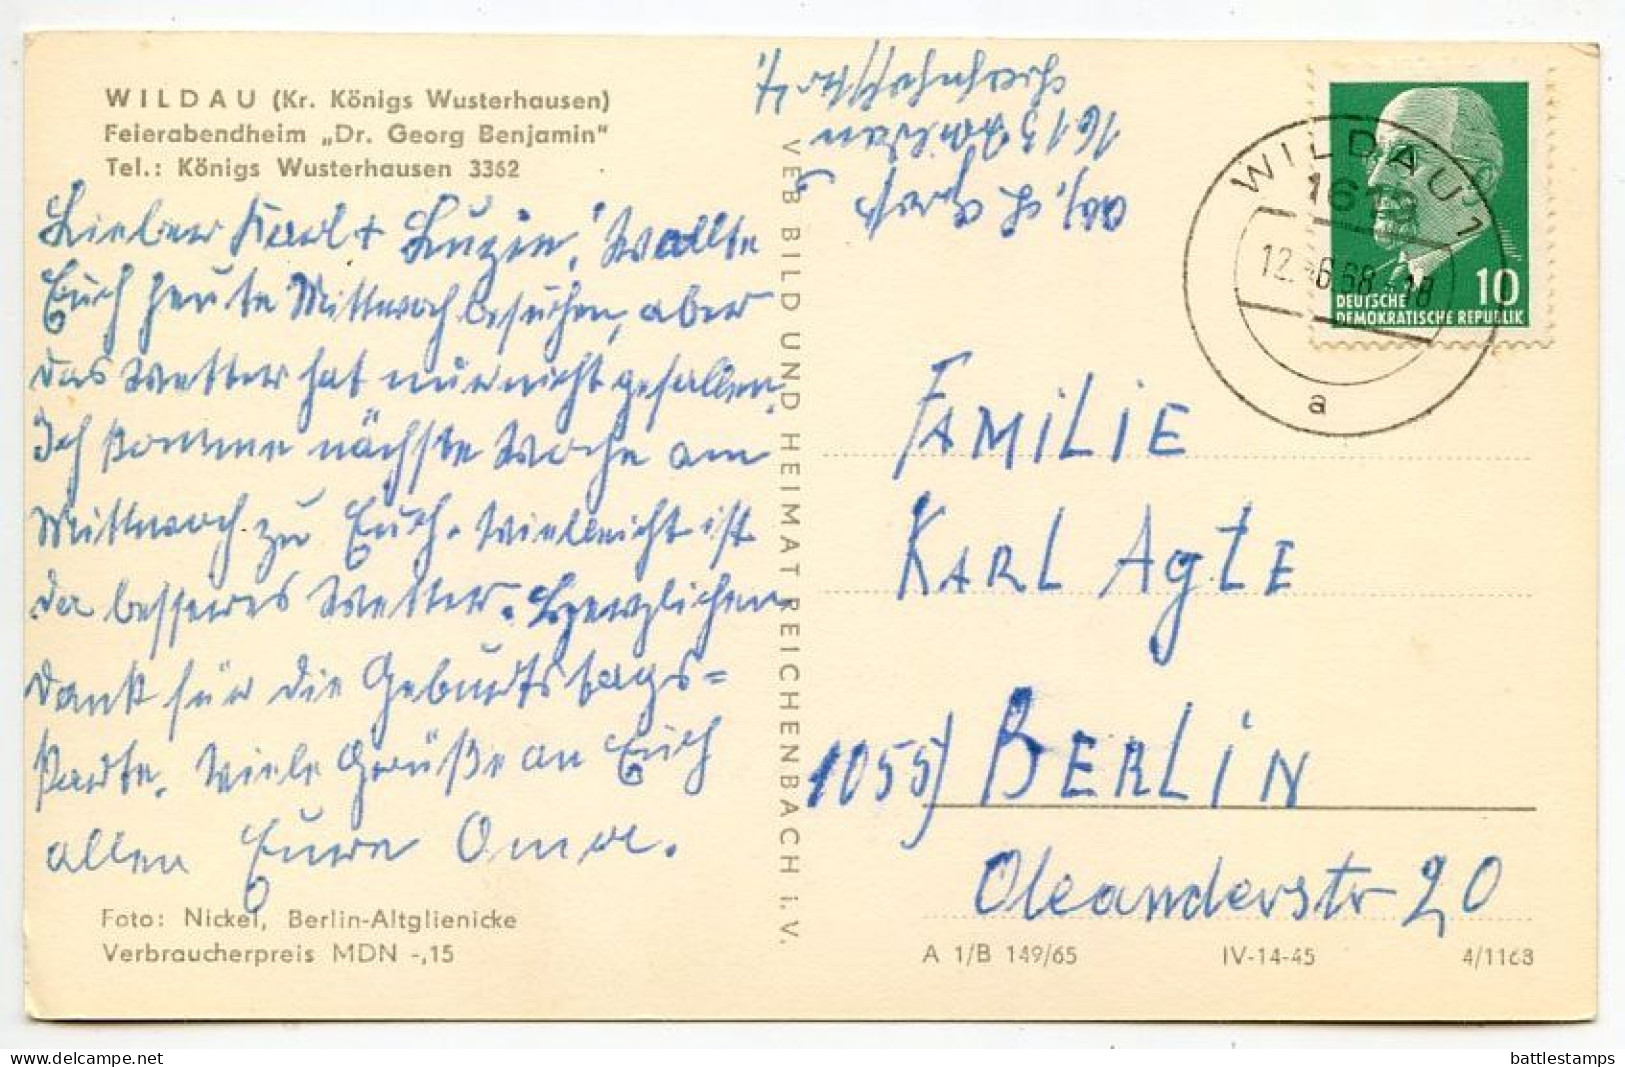 WILDAU (Kr. Königs Wusterhausen)
Feierabendheim „Dr. Georg Benjamin"
Tel.: Königs Wusterhausen 3362
Lieber Karl + Luzie! Wollte
Euch heute Mittwoch besuchen, aber
das Wetter hat mir nicht gefallen.
Ich komme nächste Woche am
Mittwoch zu Euch. Vielleicht ist
da besseres Wetter. Herzlichen
Dank für die Geburtstags=
karte. Viele Grüße an Euch
allen Eure Oma.
Foto: Nickel, Berlin-Altglienicke
Verbraucherpreis MDN -,15
VEB BILD UND HEIMAT REICHENBACH i. V.
1615
WILDAU 1
1619
12.-6.68-18
a
10
DEUTSCHE
DEMOKRATISCHE REPUBLIK
FAMILIE
KARL AgtE
1055) BERLIN
Oleanderstr 20
A 1/B 149/65 IV-14-45 4/1168
Delcampe.net
battlestamps